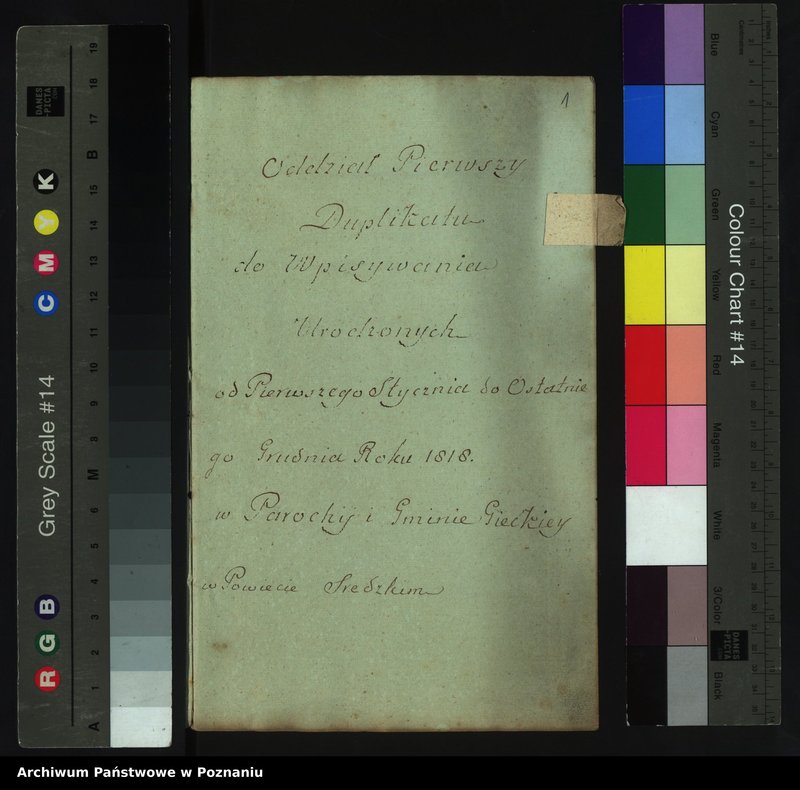 1
Oddział Pierwszy
Duplikatu
do Wpisywania
Urodzonych
od Pierwszego Stycznia do Ostatnie
go Grudnia Roku 1818.
w Parochij i Gminie Gieckiey
w Powiecie Sredzkim
Grey Scale #14
R G B
C M Y K
A 1 2 3 4 5 6 M 8 9 10 11 12 13 14 15 B 17 18 19
DANES
-PICTA
.COM
Colour Chart #14
Blue
Cyan
Green
Yellow
Red
Magenta
White
3/Color
Black
Centimetres
Inches
DANES
-PICTA
.COM
Archiwum Państwowe w Poznaniu